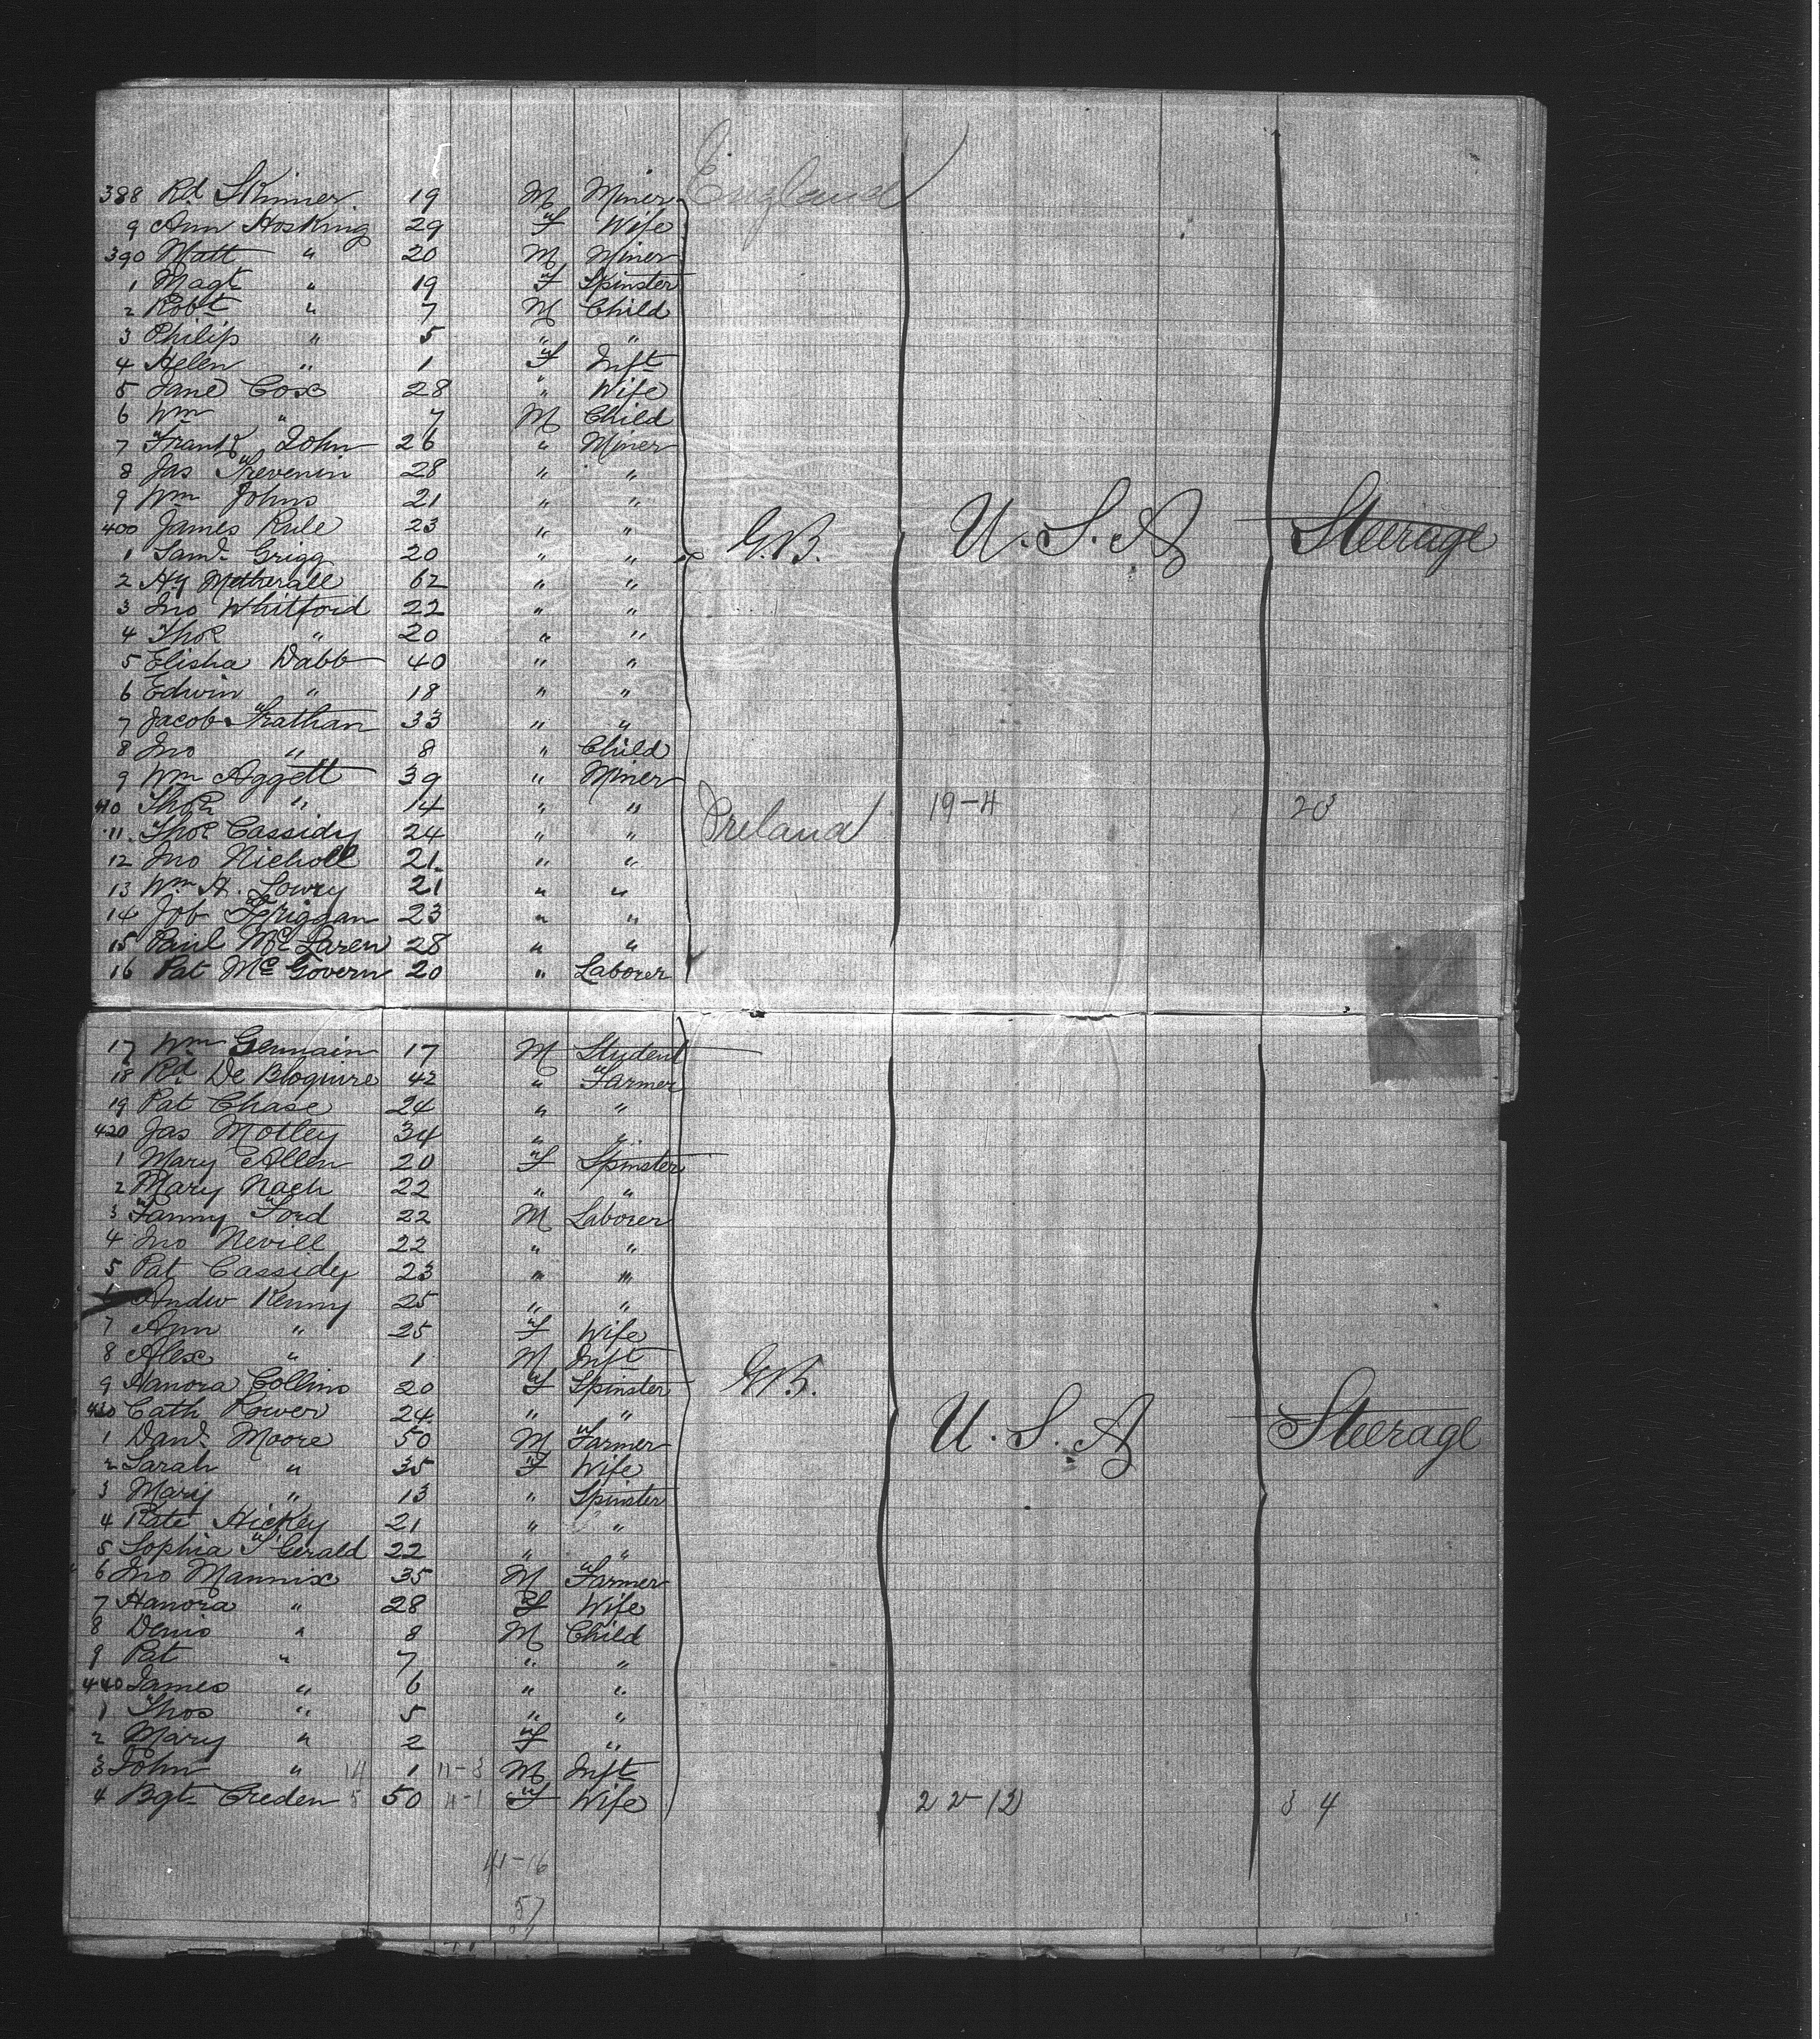 England
388 Rd. Skinner 19 M Miner
9 Ann Hosking 29 F Wife
390 Matt " 20 M Miner
1 Magt " 19 F Spinster
2 Robt " 7 M Child
3 Philip " 5 " "
4 Helen " 1 F Inft
5 Jane Cox 28 " Wife
6 Wm " 7 M Child
7 Frank John 26 " Miner
8 Jas Trevenin 28 " "
9 Wm Johns 21 " "
400 James Rule 23 " " G.B. U.S.A Steerage
1 Saml. Grigg 20 " "
2 Hy Metherall 62 " "
3 Jno Whitford 22 " "
4 Thos " 20 " "
5 Elisha Dabb 40 " "
6 Edwin " 18 " "
7 Jacob Trathan 33 " "
8 Jno " 8 " Child
9 Wm Aggett 39 " Miner
410 Thos " 14 " " 19-4
11 Thos Cassidy 24 " " Ireland
12 Jno Nicholl 21 " "
13 Wm H. Lowry 21 " "
14 Job 23 " "
15 Paul McLaren 28 " "
16 Pat McGovern 20 " Laborer
17 Wm Germain 17 M Student
18 Rd. De Bloquire 42 " Farmer
19 Pat Chase 24 " "
420 Jas Motley 34 " "
1 Mary Allen 20 F Spinster
2 Mary Nagh 22 " "
3 Fanny Ford 22 M Laborer
4 Jno Nevill 22 " "
5 Pat Cassidy 23 " "
Andw Kenny 25 " "
7 Ann " 25 F Wife
8 Alex " 1 M Inft
9 Hanora Collins 20 F Spinster G.B.
430 Cath Power 24 " "
1 Danl. Moore 50 M Farmer U.S.A Steerage
2 Sarah " 35 F Wife
3 Mary " 13 " Spinster
4 Kate Hickey 21 " "
5 Sophia F'Gerald 22 " "
6 Jno Mannix 35 M Farmer
7 Hanora " 28 F Wife
8 Denis " 8 M Child
9 Pat " 7 " "
440 James " 6 " "
1 Thos " 5 " "
2 Mary " 2 F "
3 John " 14 1 11-3 M Inft
4 Bgt Creden 5 50 4-1 F Wife 22-12 34
41-16
57